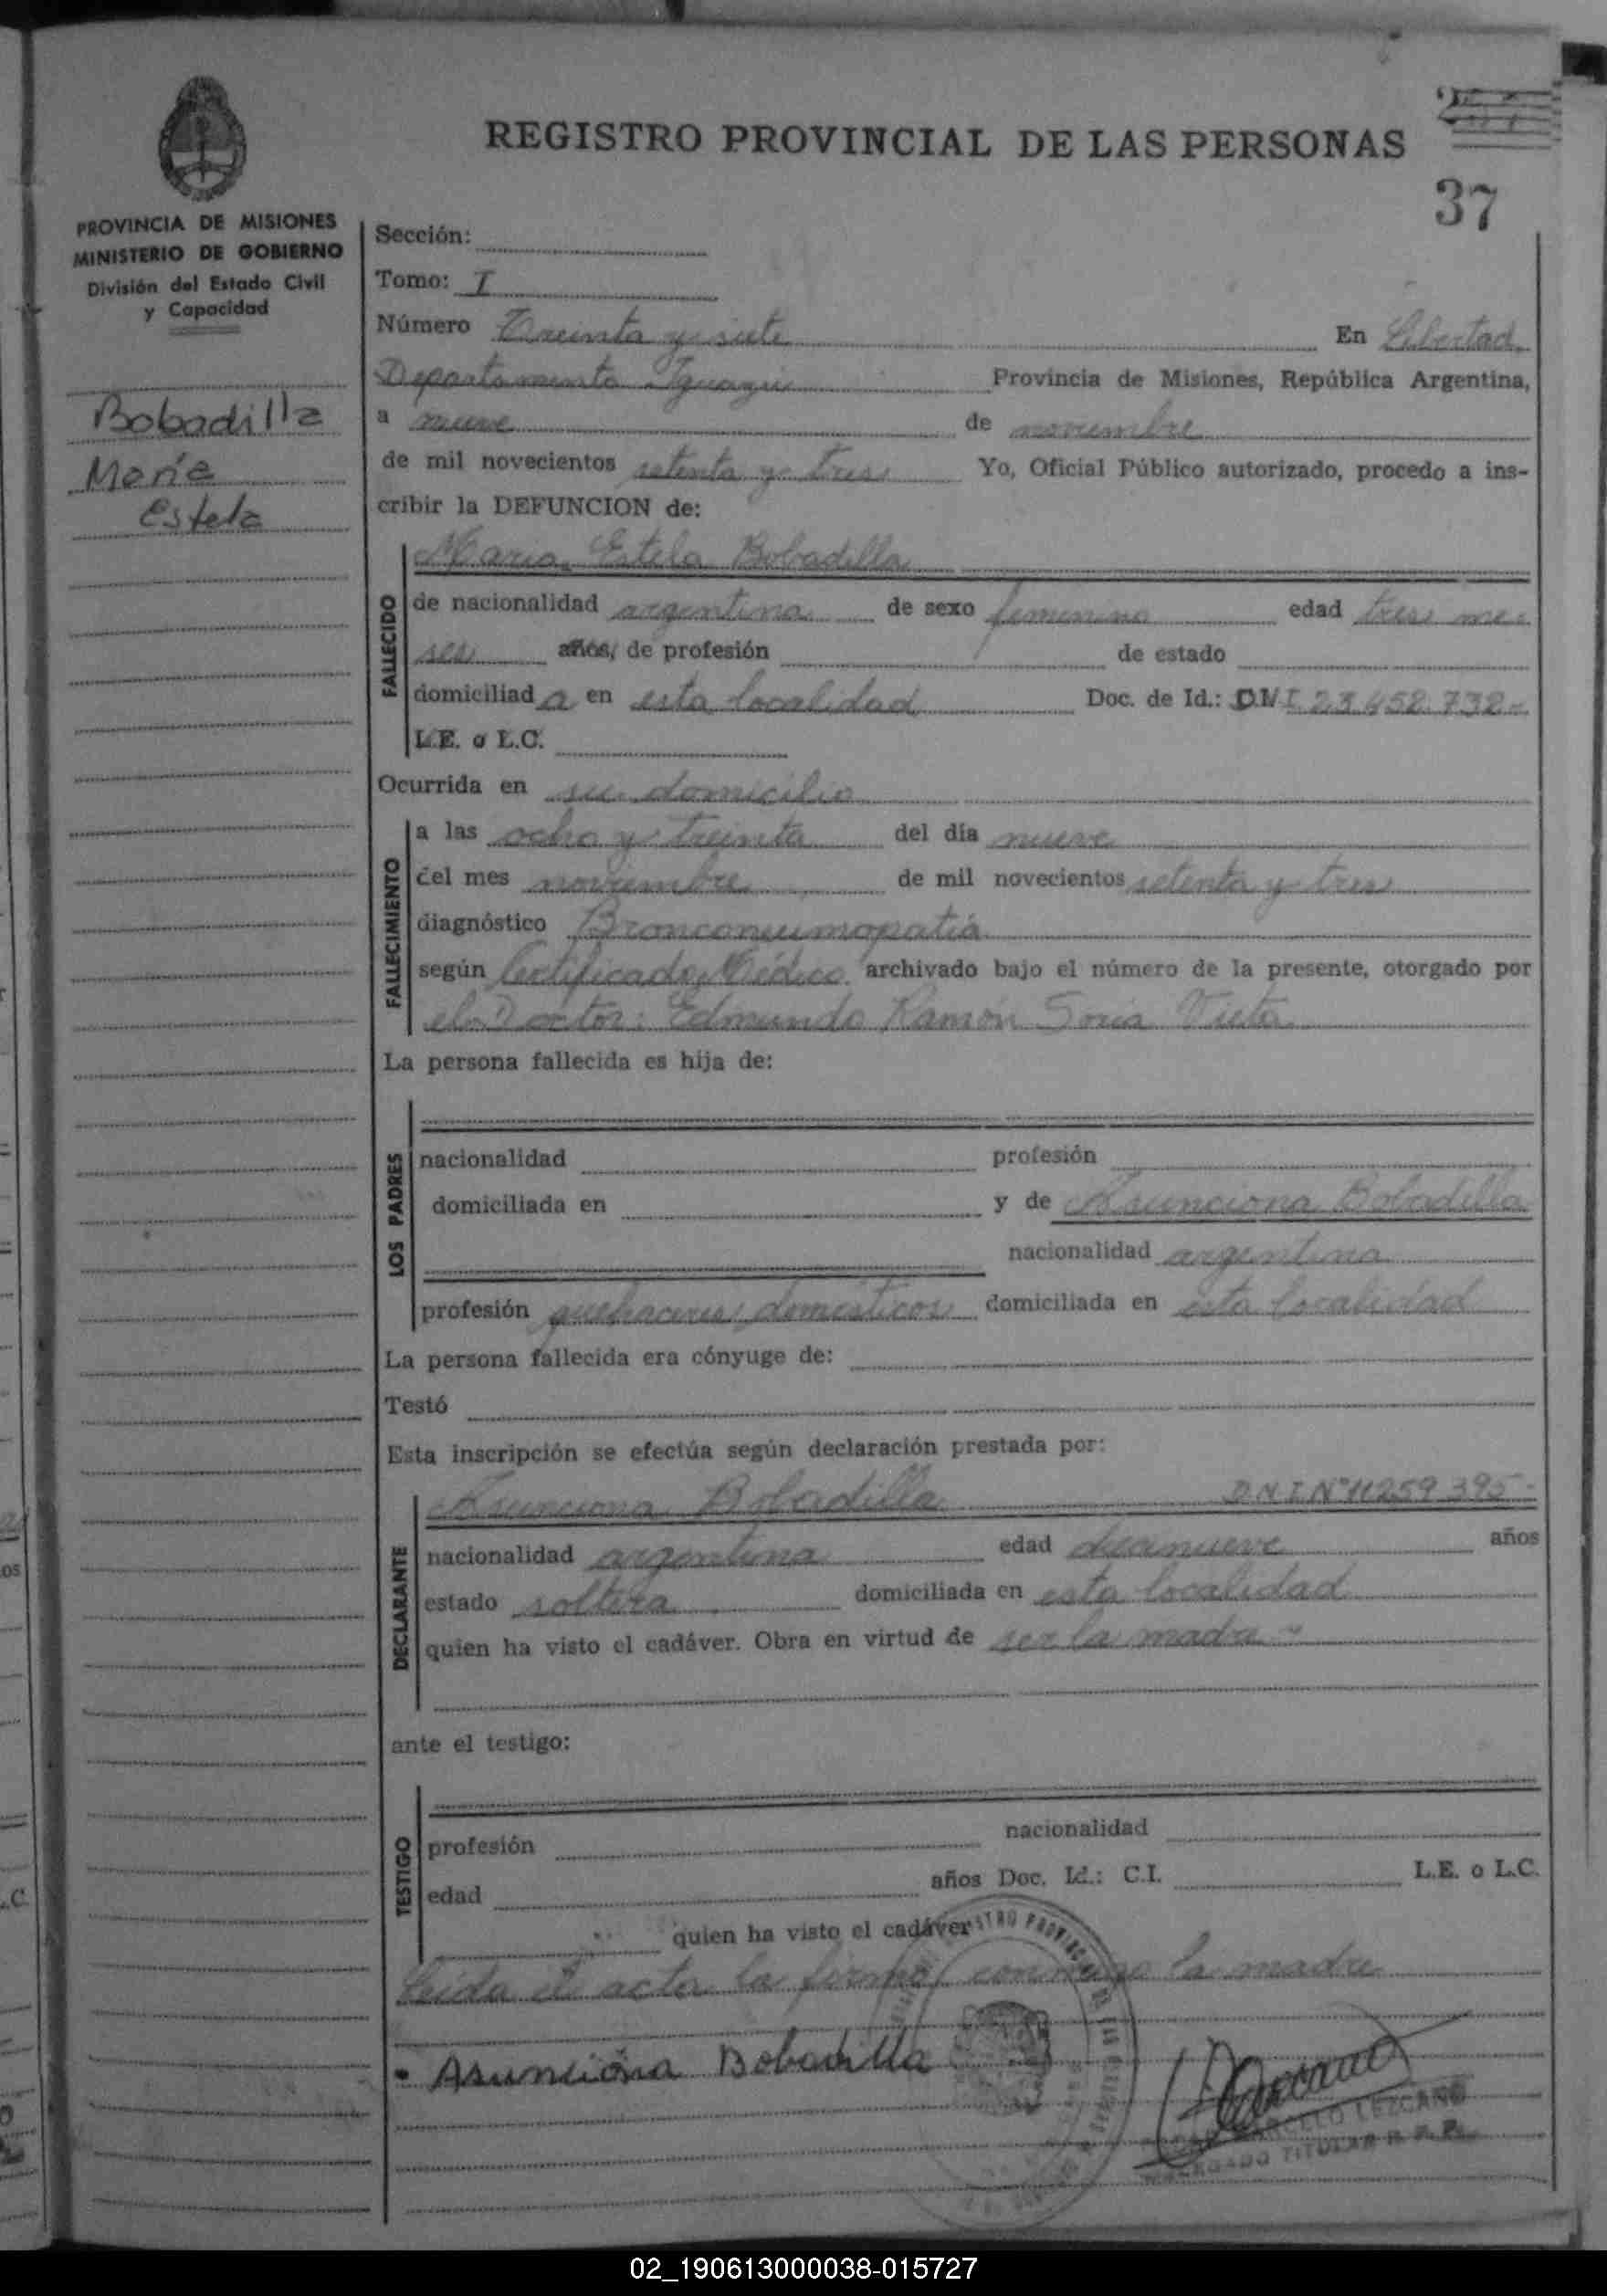 REGISTRO PROVINCIAL DE LAS PERSONAS
37
PROVINCIA DE MISIONES
MINISTERIO DE GOBIERNO
División del Estado Civil
y Capacidad
Bobadilla
María
Estela
Sección:
Tomo: I
Número Treinta y siete En Libertad
Departamento Iguazú Provincia de Misiones, República Argentina,
a nueve de noviembre
de mil novecientos setenta y tres Yo, Oficial Público autorizado, procedo a ins-
cribir la DEFUNCION de:
FALLECIDO
María Estela Bobadilla
de nacionalidad argentina de sexo femenino edad tres me-
ses años, de profesión de estado
domiciliad a en esta localidad Doc. de Id.: D.N.I. 23.452.732-
L.E. o L.C.
Ocurrida en su domicilio
FALLECIMIENTO
a las ocho y treinta del día nueve
del mes noviembre de mil novecientos setenta y tres
diagnóstico Bronconeumopatía
según Certificado Médico archivado bajo el número de la presente, otorgado por
el Doctor: Edmundo Ramón Soria Vieta
La persona fallecida es hija de:
LOS PADRES
nacionalidad profesión
domiciliada en y de Asunciona Bobadilla
nacionalidad argentina
profesión quehaceres domésticos domiciliada en esta localidad
La persona fallecida era cónyuge de:
Testó
Esta inscripción se efectúa según declaración prestada por:
DECLARANTE
Asunciona Bobadilla D.N.I. Nº 11.259.395-
nacionalidad argentina edad diecinueve años
estado soltera domiciliada en esta localidad
quien ha visto el cadáver. Obra en virtud de ser la madre
ante el testigo:
TESTIGO
profesión nacionalidad
edad años Doc. Id.: C.I. L.E. o L.C.
quien ha visto el cadáver
Leída el acta la firma conmigo la madre
Asunciona Bobadilla
LEZCANO
DELEGADO TITULAR R. P. P.
02_190613000038-015727